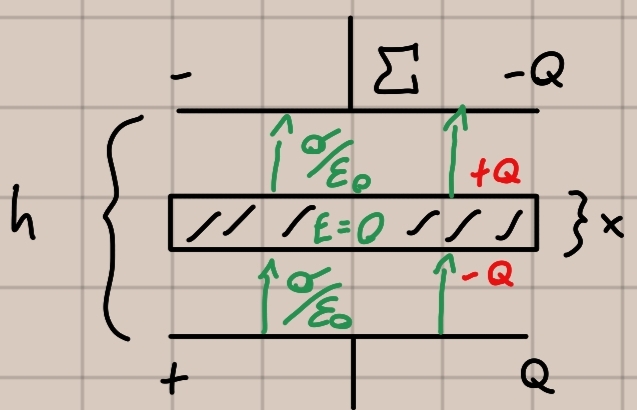 - Σ -Q
σ/ε₀ +Q
h E=0 x
σ/ε₀ -Q
+ Q